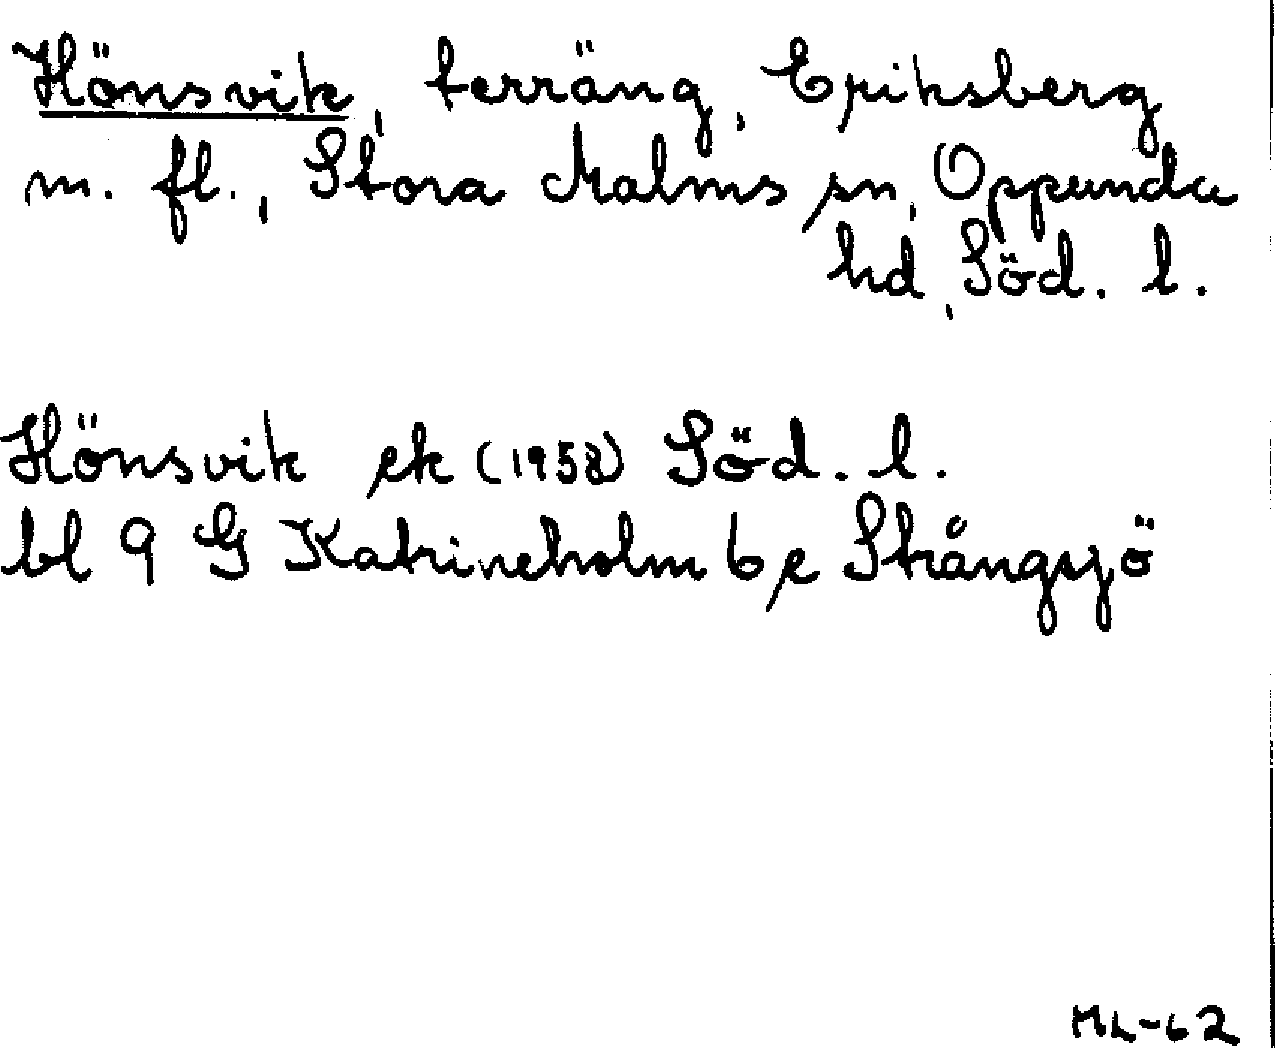 Hönsvik, terräng, Eriksberg
m. fl., Stora Malms sn, Oppunda
hd, Söd. l.
Hönsvik ek (1958) Söd. l.
bl 9 G Katrineholm 6 e Strångsjö
ML-62